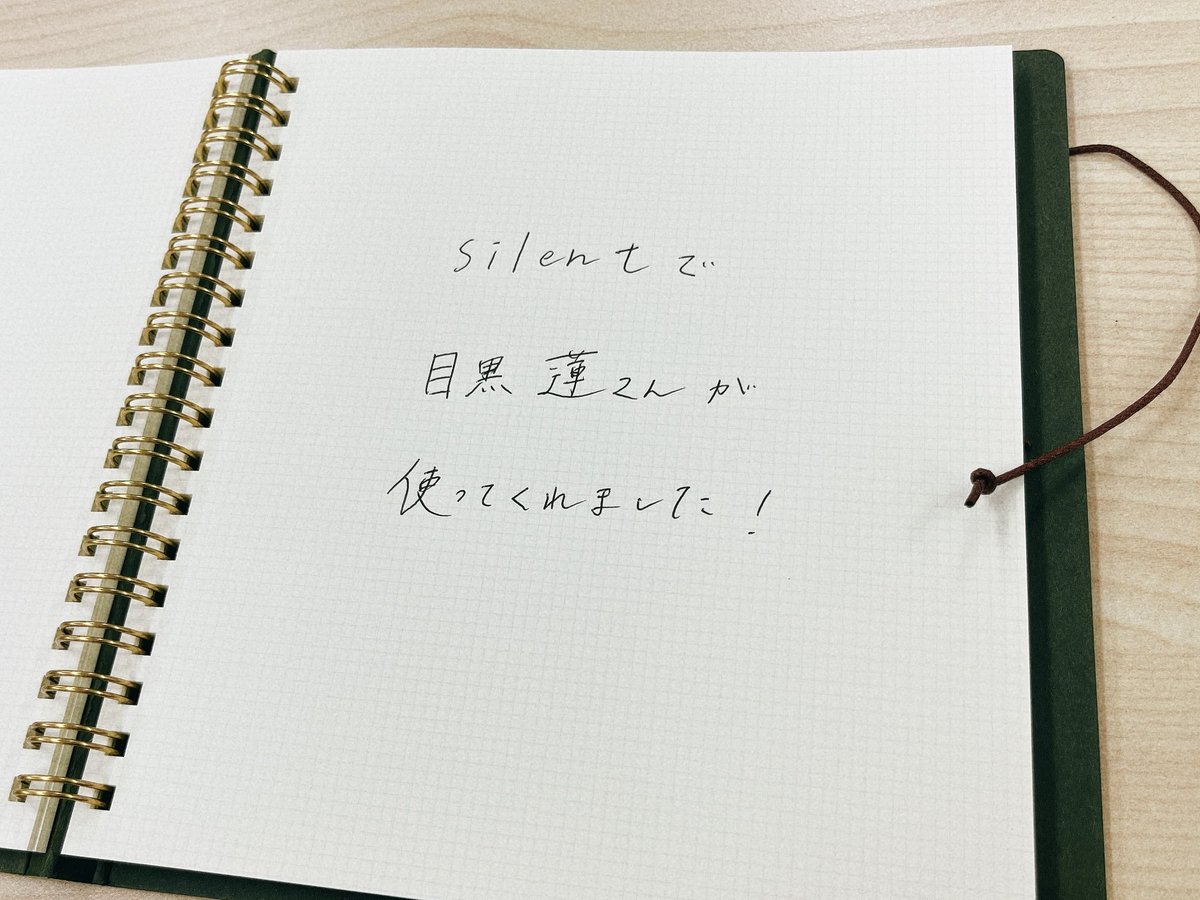 silentで
目黒 蓮さんが
使ってくれました!